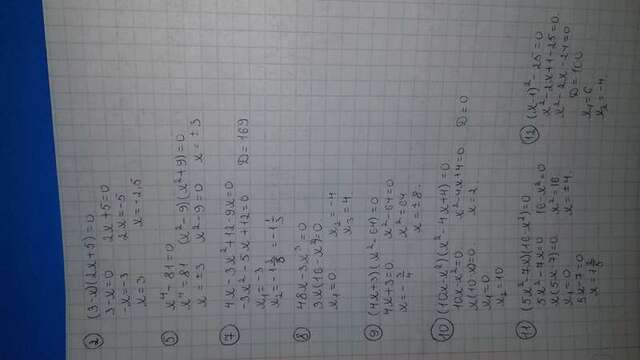 2) (3-x)(2x+5)=0
3-x=0 2x+5=0
-x=-3 2x=-5
x=3 x=-2,5
5) x⁴-81=0
x⁴=81 (x²-9)(x²+9)=0
x=±3 x²-9=0 x=±3
7) 4x-3x²+12-9x=0
-3x²-5x+12=0 D=169
x₁=-3
8) 48x-3x³=0
3x(16-x²)=0
x₁=0 x₂=-4
x₃=4
9) (4x+3)(x²-64)=0
4x+3=0 x²-64=0
x=-3/4 x²=64
x=±8
10) (10x-x²)(x²-4x+4)=0
10x-x²=0 x²-4x+4=0 D=0
x(10-x)=0 x=2
x₁=0
x₂=10
11) (5x²-7x)(16-x²)=0
5x²-7x=0 16-x²=0
x(5x-7)=0 x²=16
x₁=0 x=±4
5x-7=0
12) (x-1)²-25=0
x²-2x+1-25=0
x²-2x-24=0
D=100
x₁=6
x₂=-4